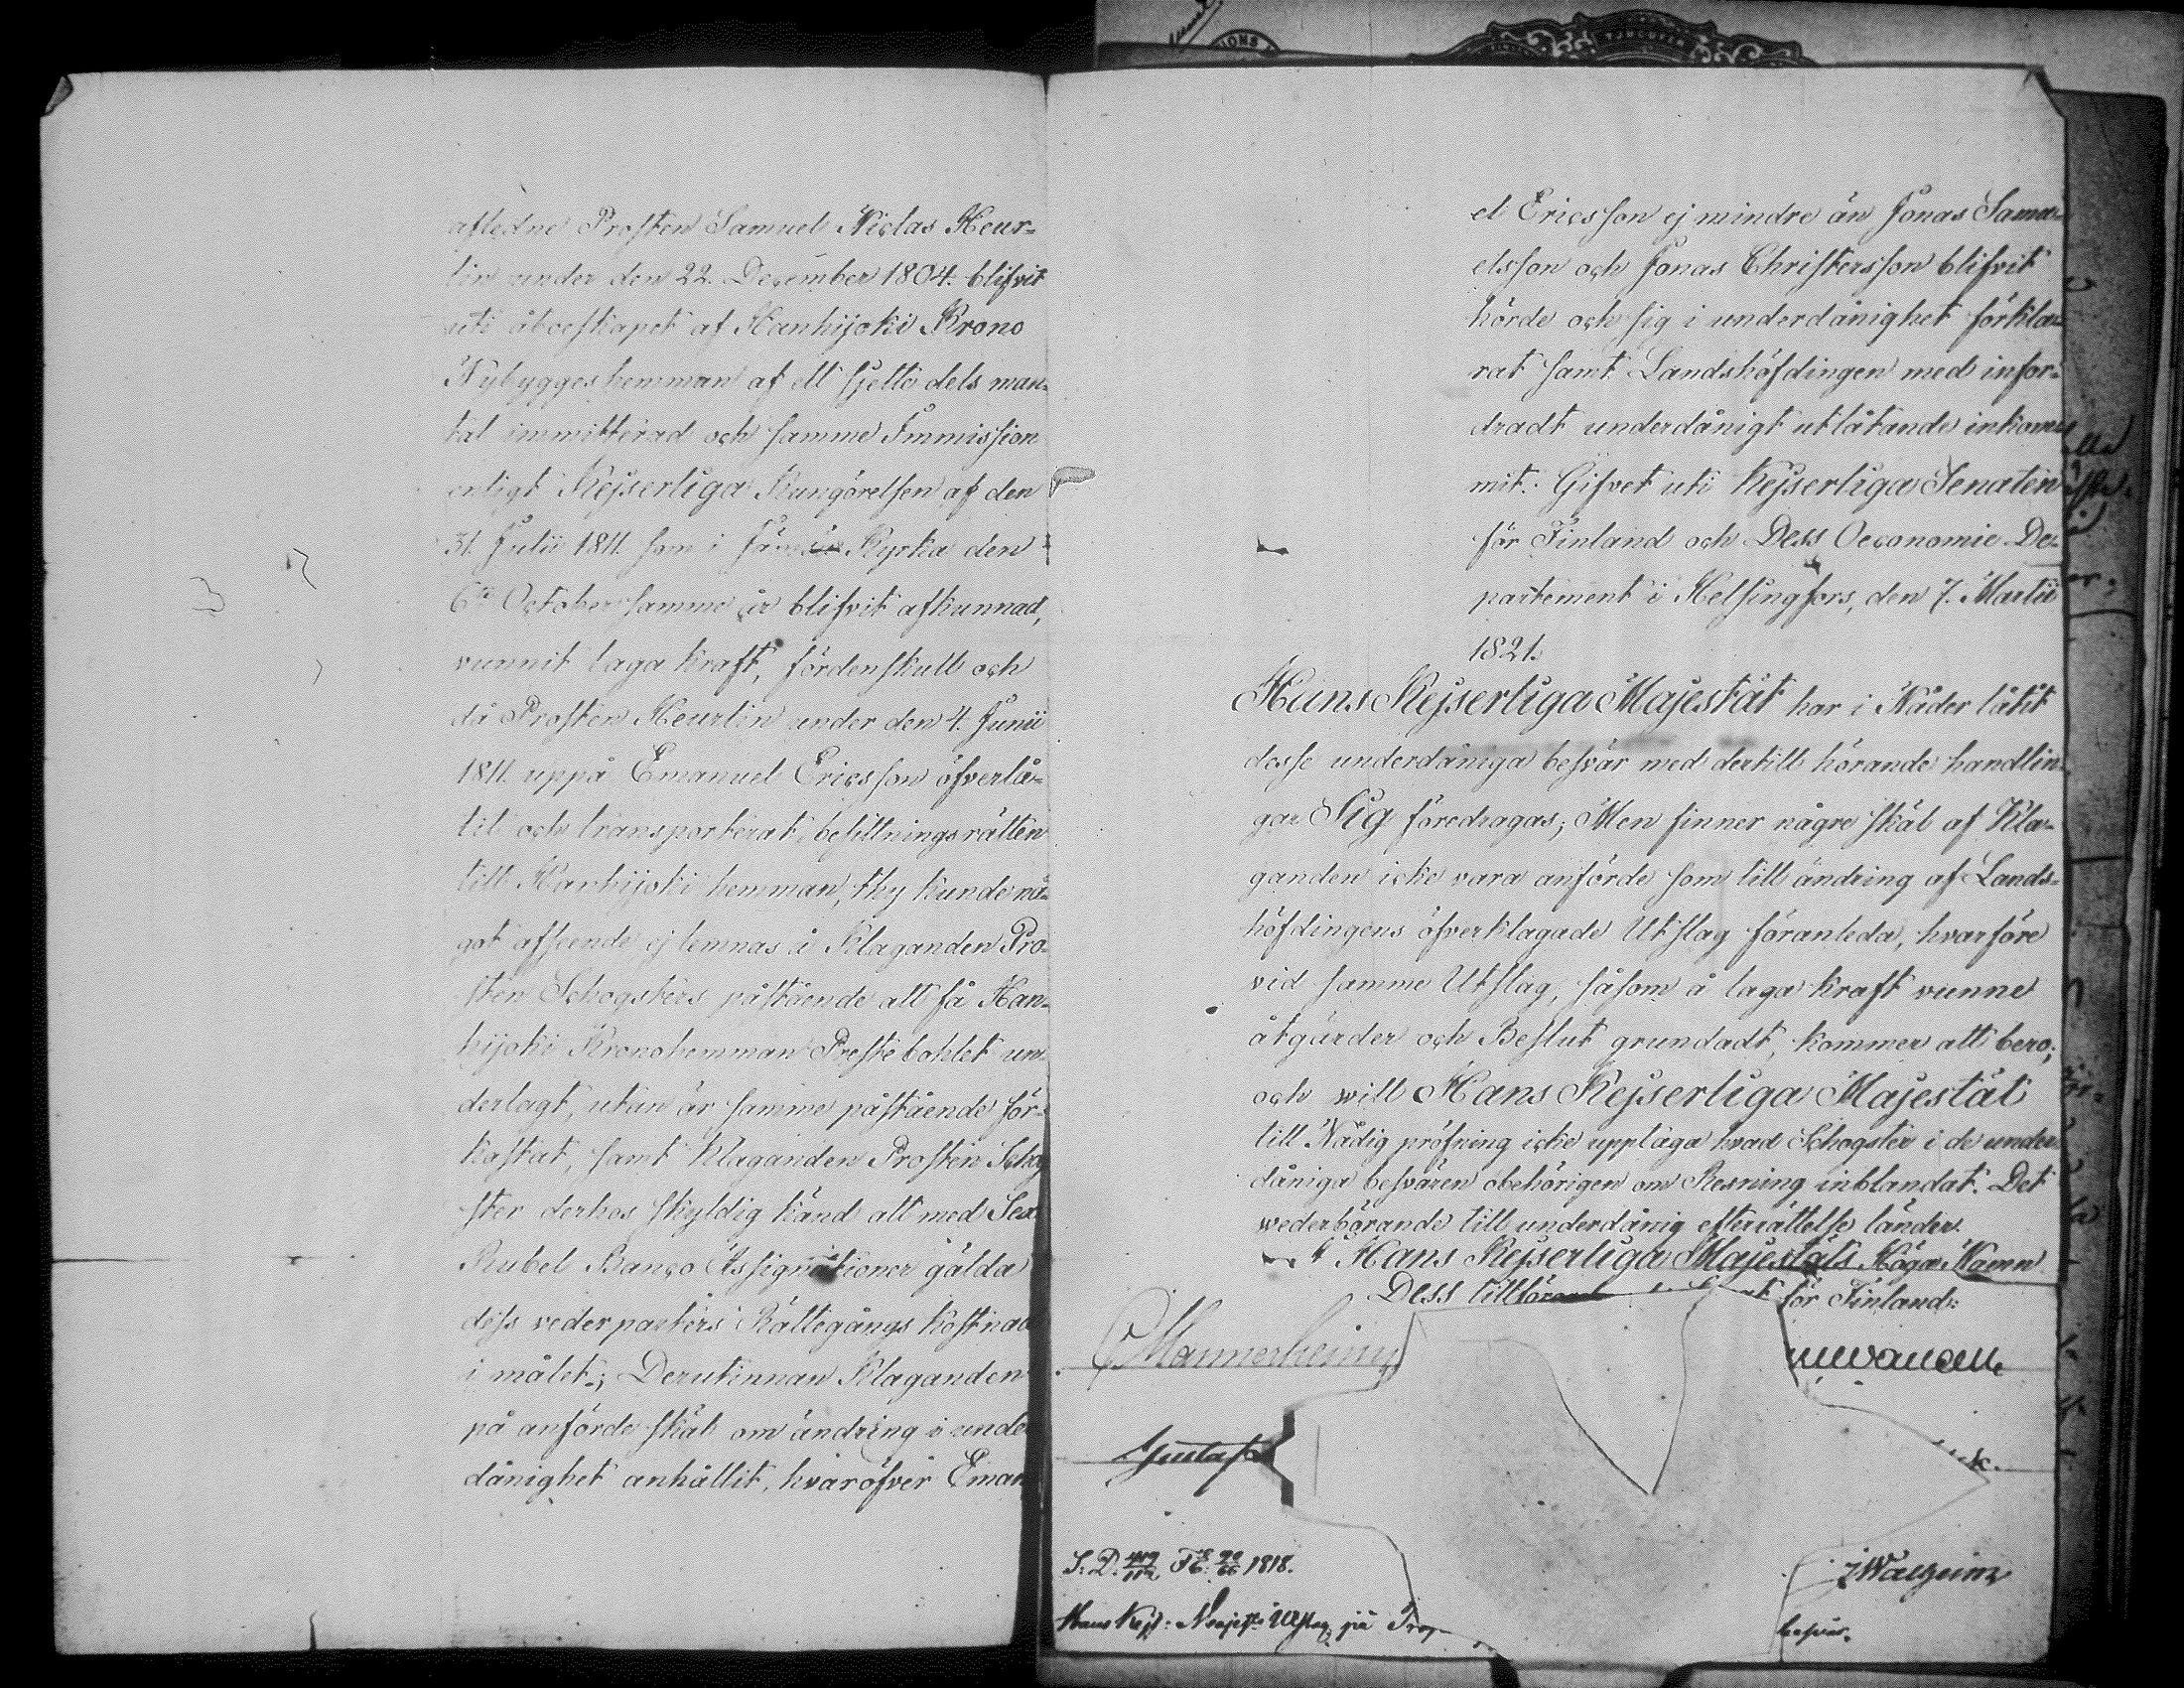 afledne Prosten Samuel Niclas Heur-
lin under den 22. December 1804. blifvit
uti åboeskapet af Hanhijoki Krono
Nybyggeshemman af ett sjette dels man-
tal immitterad och samme Immission
enligt Kejserliga Kungörelsen af den
31. Julii 1811. som i Kyrka den
6te October samme år blifvit afkunnad,
vunnit laga kraft, fördenskull och
då Prosten Heurlin under den 4. Junii
1811. uppå Emanuel Ericsson öfverlå-
tit och transporterat besittningsrätten
till Hanhijoki hemman, thy kunde nå-
got afseende ej lemnas å Klaganden Pro-
sten Schogsters påstående att få Han-
hijoki Kronohemman Prestebohlet un-
derlagt, utan är samme påstående för-
kastat, samt Klaganden Prosten Schog
ster derhos skyldig känd att med Sex
Rubel Banco Assignationer gälda
dess vederparters Rättegångs kostnad
i målet; Derutinnan Klaganden
på anförde skäl om ändring i under
dånighet anhållit, hvaröfver Eman
el Ericsson ej mindre än Jonas Samu-
elsson och Jonas Christersson blifvit
hörde och sig i underdånighet förkla-
rat samt Landshöfdingen med infor-
dradt underdånigt utlåtande inkom-
mit. Gifvet uti Kejserliga Senaten
för Finland och Dess Oeconomie De-
partement i Helsingfors, den 7. Martii
1821.
Hans Kejserliga Majestät har i Nåder låtit
desse underdåniga besvär med dertill hörande handlin-
gar Sig föredragas; Men finner någre skäl af Kla-
ganden icke vara anförde som till ändring af Lands-
höfdingens öfverklagade Utslag föranleda, hvarföre
vid samme Utslag, såsom å laga kraft vunne
åtgärder och Beslut grundadt, kommer att bero;
och will Hans Kejserliga Majestät
till Nådig pröfning icke upptaga hvad Schogster i de under
dåniga besvären obehörigen om Resning inblandat. Det
wederbörande till underdånig efterrättelse länder.
Hans Kejserliga Majestäts Höga Namn
Dess för Finland:
Mannerheim
Gustaf
S. D. 1818.
Hans Kejs: Majts Utslag på
besvär.